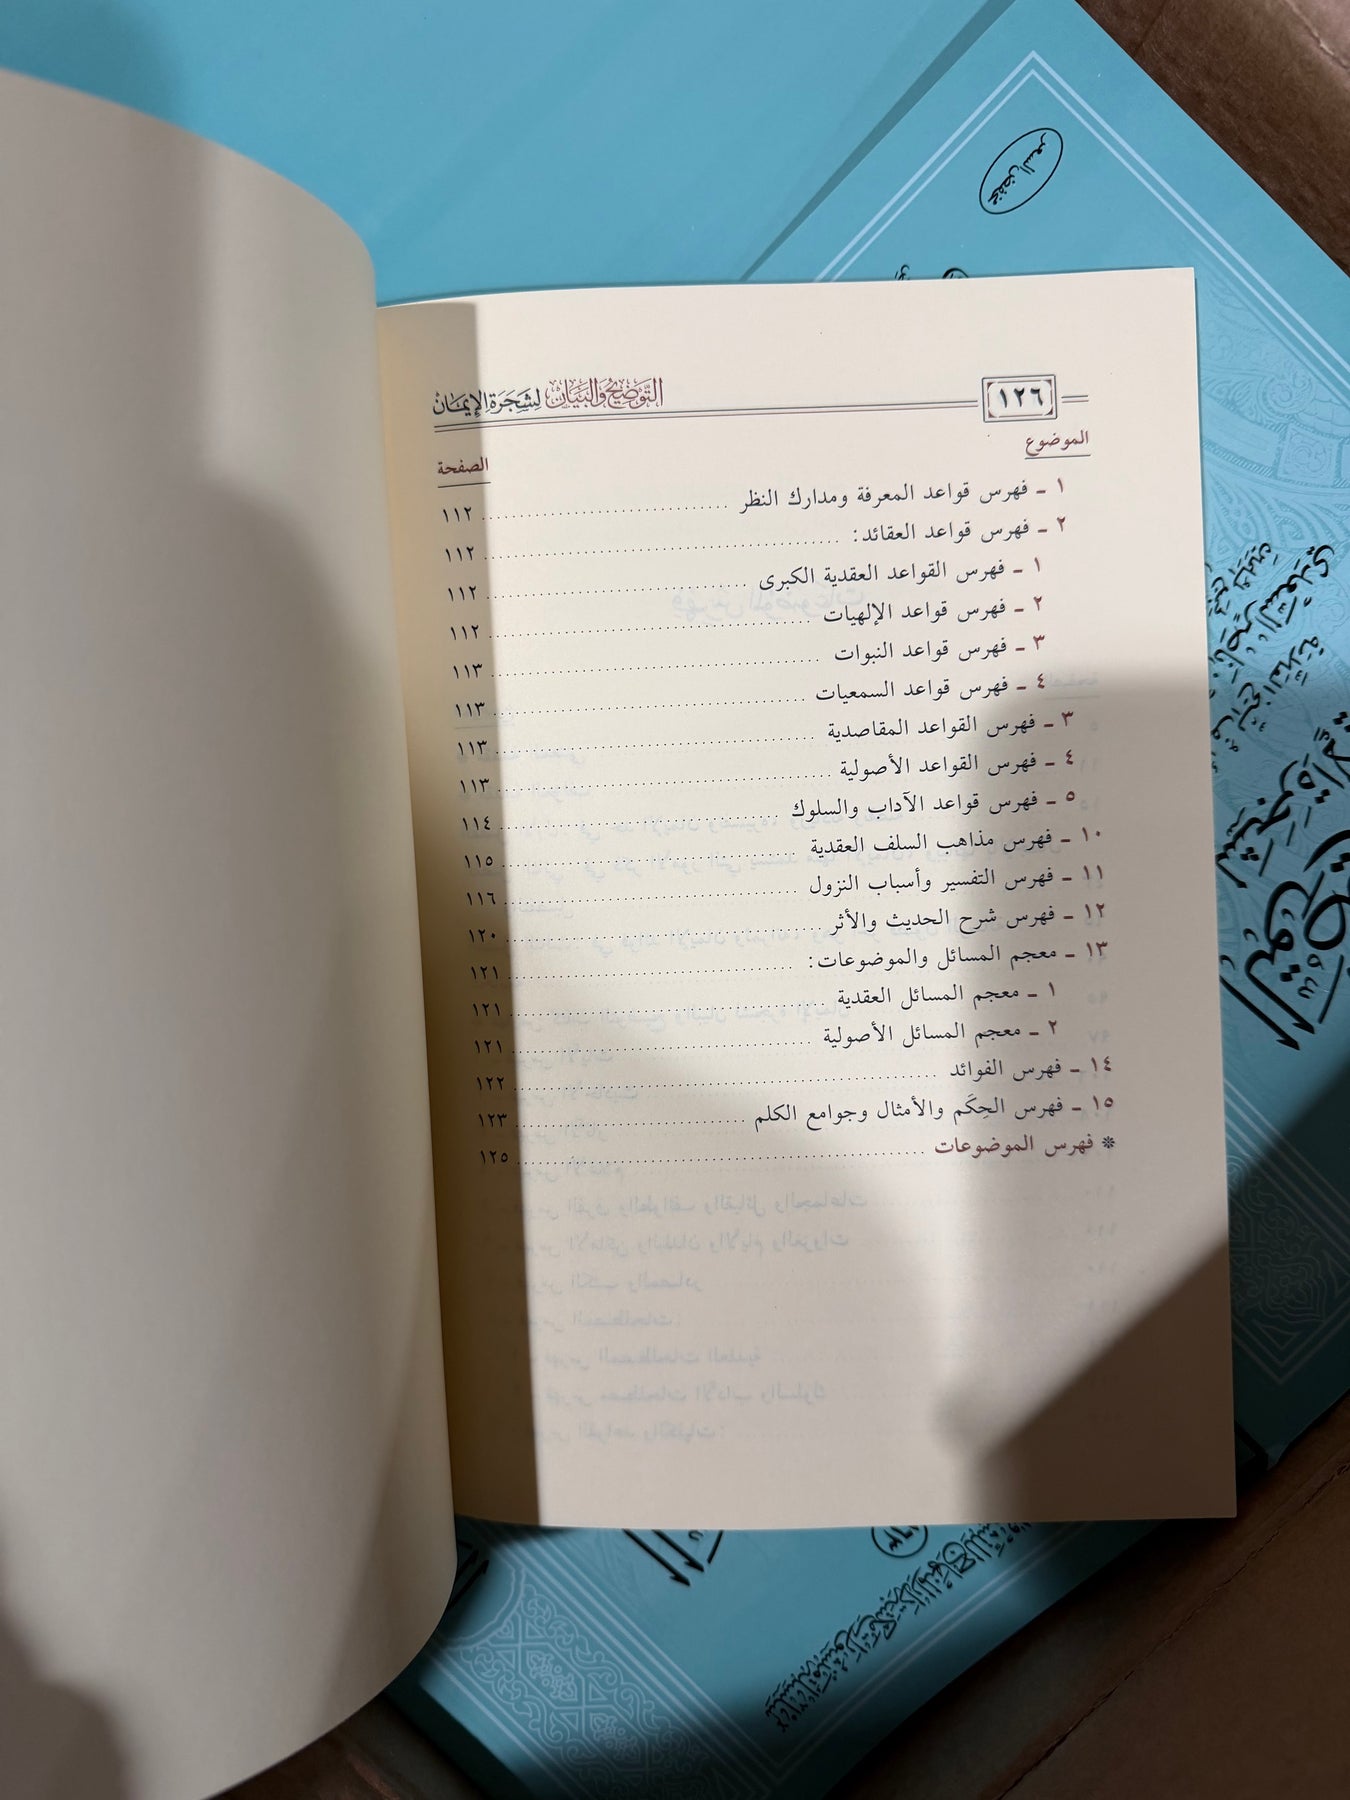 ١٢٦
التَّوْضِيحُ وَالبَيَان لِشَجَرَةِ الإِيمَان
الموضوع الصفحة
١ ـ فهرس قواعد المعرفة ومدارك النظر ١١٢
٢ ـ فهرس قواعد العقائد: ١١٢
١ ـ فهرس القواعد العقدية الكبرى ١١٢
٢ ـ فهرس قواعد الإلهيات ١١٢
٣ ـ فهرس قواعد النبوات ١١٣
٤ ـ فهرس قواعد السمعيات ١١٣
٣ ـ فهرس القواعد المقاصدية ١١٣
٤ ـ فهرس القواعد الأصولية ١١٣
٥ ـ فهرس قواعد الآداب والسلوك ١١٤
١٠ ـ فهرس مذاهب السلف العقدية ١١٥
١١ ـ فهرس التفسير وأسباب النزول ١١٦
١٢ ـ فهرس شرح الحديث والأثر ١٢٠
١٣ ـ معجم المسائل والموضوعات: ١٢١
١ ـ معجم المسائل العقدية ١٢١
٢ ـ معجم المسائل الأصولية ١٢١
١٤ ـ فهرس الفوائد ١٢٢
١٥ ـ فهرس الحِكَم والأمثال وجوامع الكلم ١٢٣
❊ فهرس الموضوعات ١٢٥